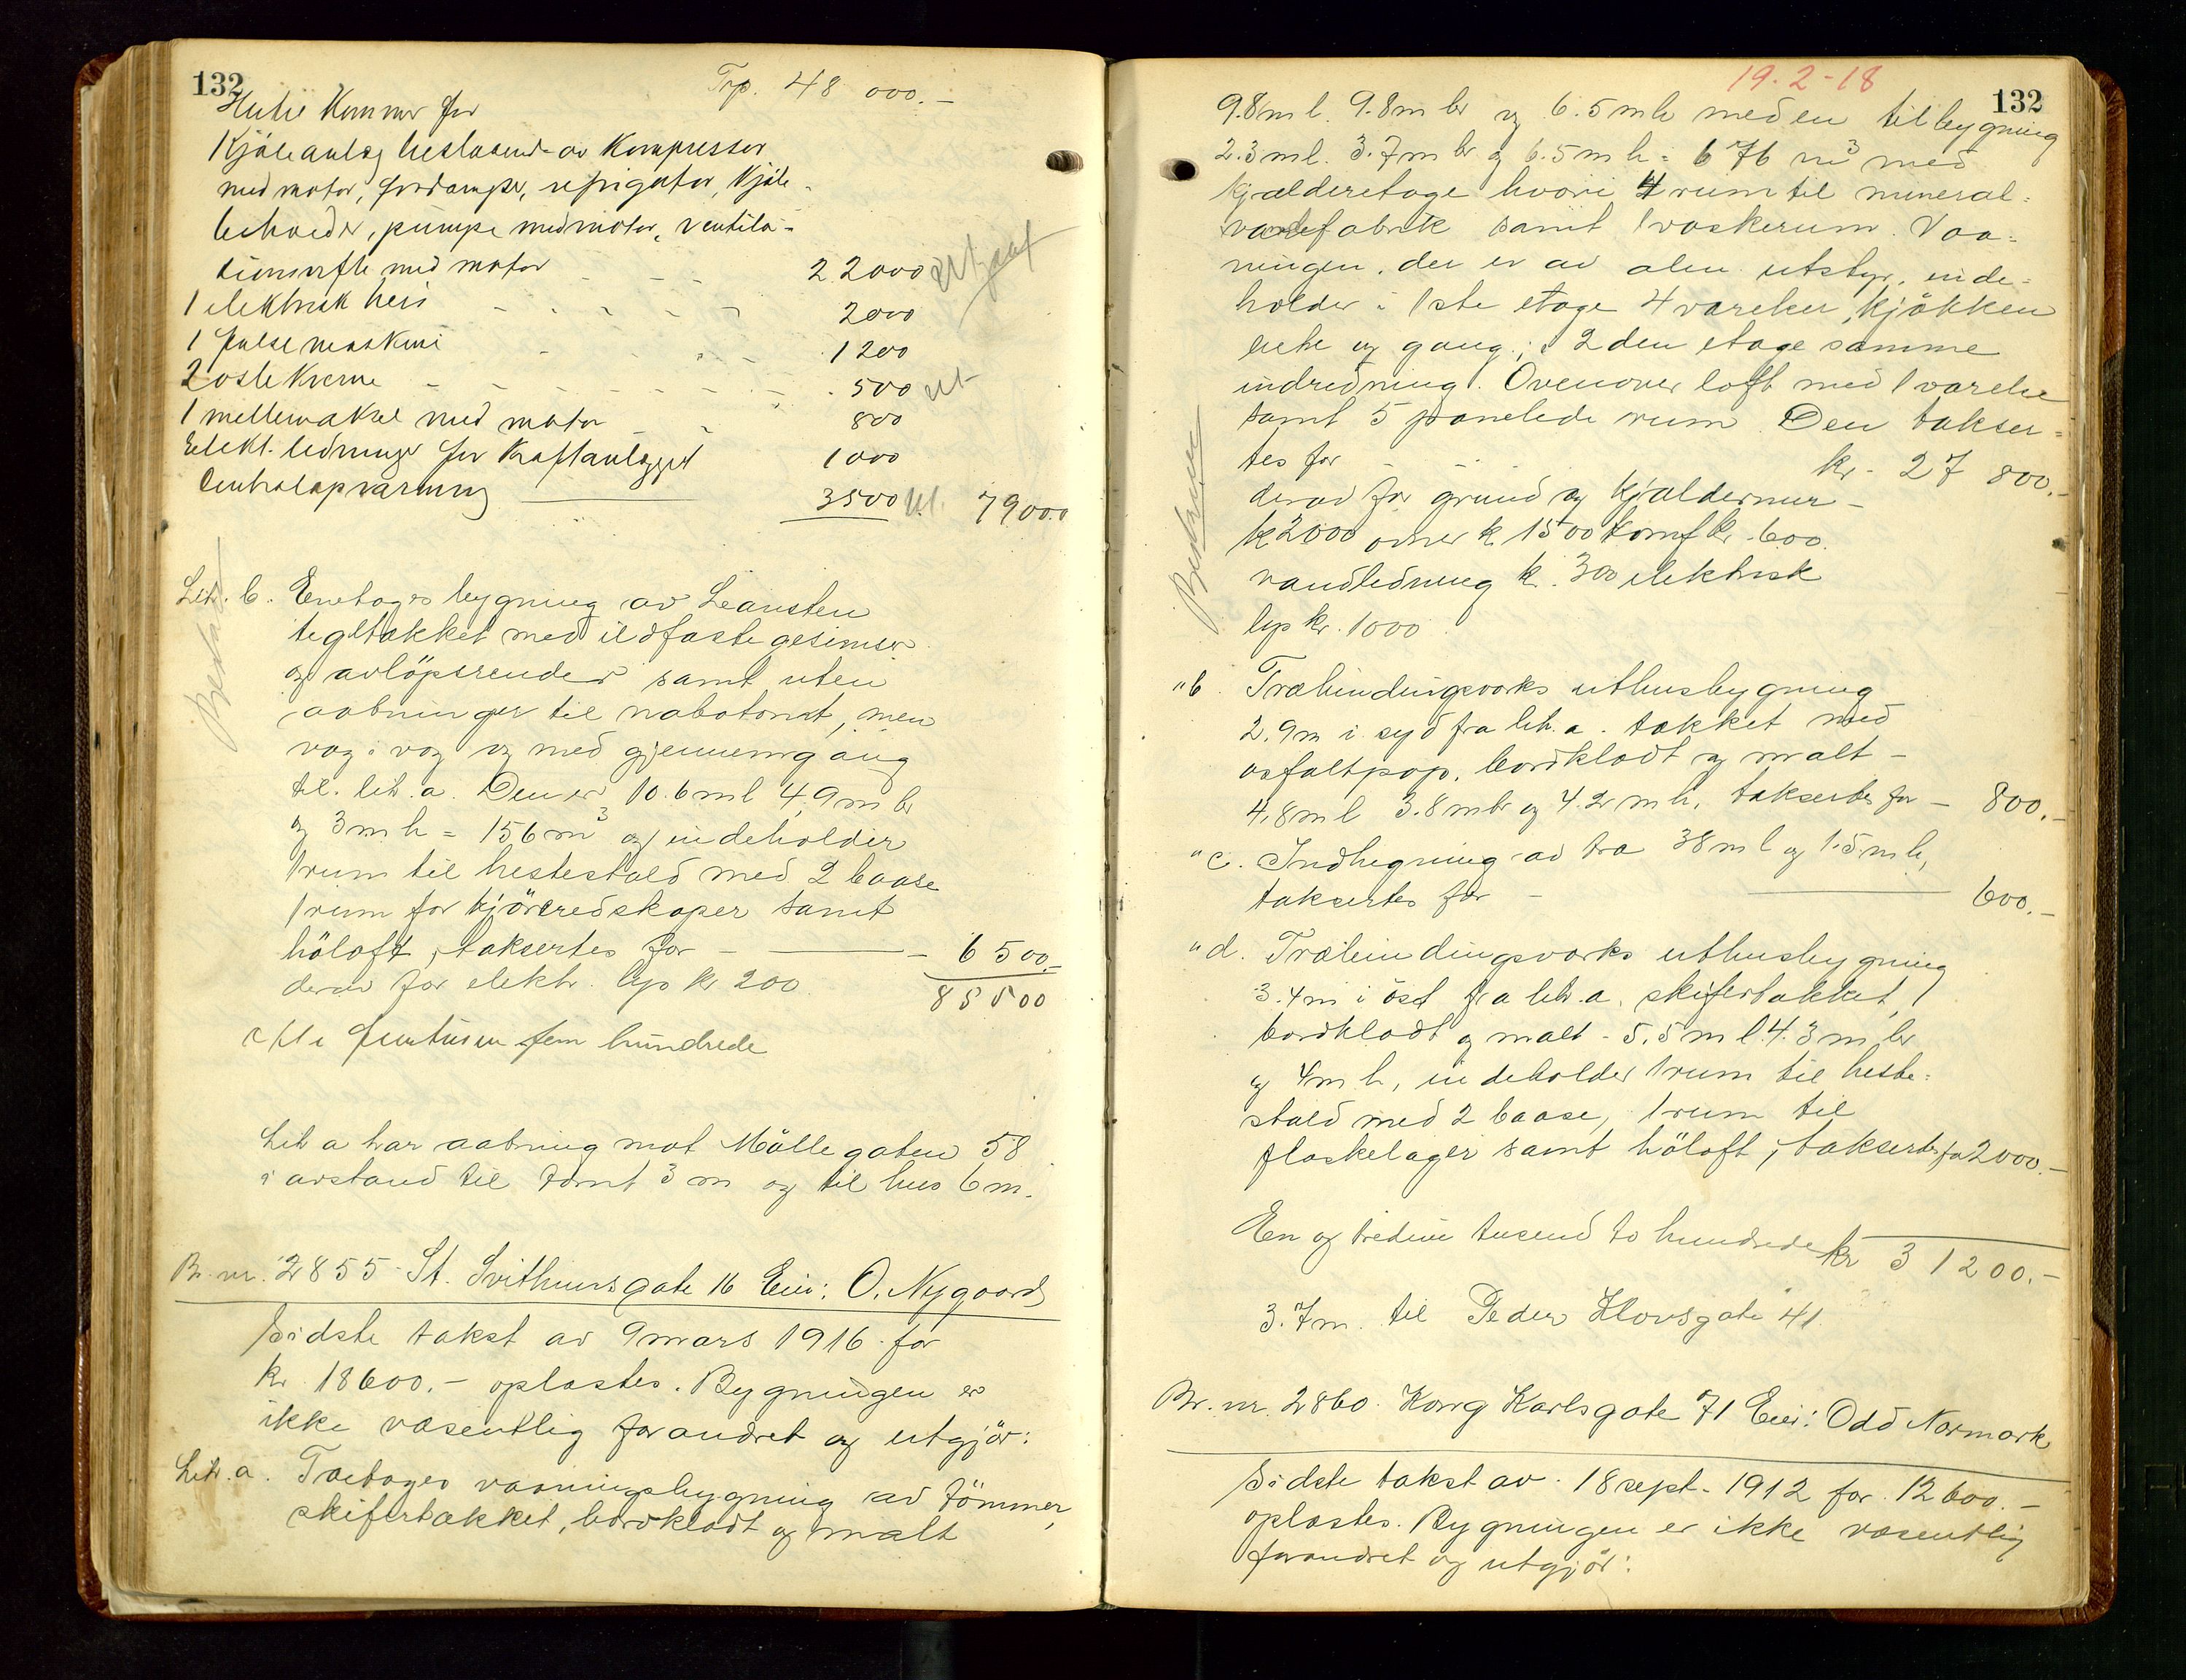 132
Trp. 48 000.-
Kjøleanlæg bestaaende av Kompressor
med motor, fordamper, refrigator, Kjøle-
beholder, pumpe med motor, ventila-
tionsvifte med motor - - 22000
1 elektrisk heis - - - - - 2000
1 pulsemaskine - - - 1200
2 oste kverne - - - - - - 500 ut
1 mellemaksel med motor - - 800
Elekt. ledninger for Kraftanlægget 1000
Centralopvarming 3500 ut. 79000
Bestaaende
Litr. b. Enetages bygning av Leansten
tegltækket med ildfaste gesimser
og avløpsrender samt uten
aabninger til nabotomt, men
væg i væg og med gjennemgang
til litr. a. Den er 10.6 m l 4,9 m br
og 3 m h = 156 m³ og indeholder
1 rum til hestestald med 2 baase
1 rum for kjøreredskaper samt
høloft, taksertes for - - 6500.-
derav for elektr. lys kr 200. 85500
otti femtusen fem hundrede
Litr a har aabning mot Møllegaten 58
i avstand til tomt 3 m og til hus 6 m.
Br. nr. 2855 St. Svithunsgate 16 Eier: O. Nygaard
Sidste takst av 9 mars 1916 for
kr 18600.- oplæstes. Bygningen er
ikke væsentlig forandret og utgjør:
Litr. a. Toetages vaaningsbygning av tømmer,
skifertækket, bordklædt og malt
19.2-18
132
9.8 m l. 9.8 m br og 6.5 m h med en tilbygning
2.3 m l. 3.7 m br og 6.5 m h = 676 m³ med
kjælderetage hvori 4 rum til mineral-
vandfabrik samt 1 vaskerum. Vaa-
ningen, der er av alm. utstyr, inde-
holder i 1ste etage 4 værelser, kjøkken
entre og gang; i 2den etage samme
indredning. Ovenover loft med 1 værelse
samt 5 panelede rum. Den takser-
tes for - - kr. 27 800.-
derav for grund og kjældermur -
kr 2000 ovner kr 1500 komf kr. 600.
vandledning kr. 300 elektrisk
lys kr. 1000.
Bestaaende
" b. Træbindingsværks uthusbygning
2.9 m i syd fra litr. a. tækket med
asfaltpap, bordklædt og malt -
4,8 m l 3.8 m br og 4.2 m h, taksertes for - 800.-
" c. Indhegning av træ 38 m l og 1.5 m h,
taksertes for - 600.-
" d. Træbindingsværks uthusbygning
3.4 m i øst fra litr. a, skifertækket,
bordklædt og malt - 5,5 m l 4.3 m br
og 4 m h, indeholder 1 rum til heste-
stald med 2 baase, 1 rum til
flaskelager samt høloft, taksertes for 2000.-
En og tredive tusend to hundrede kr 31200.-
3.7 m. til Peder Klovsgate 41.
Br. nr. 2860. Kong Karlsgate 71 Eier: Odd Normark
Sidste takst av 18 sept. 1912 for 12600.-
oplæstes. Bygningen er ikke væsentlig
forandret og utgjør: